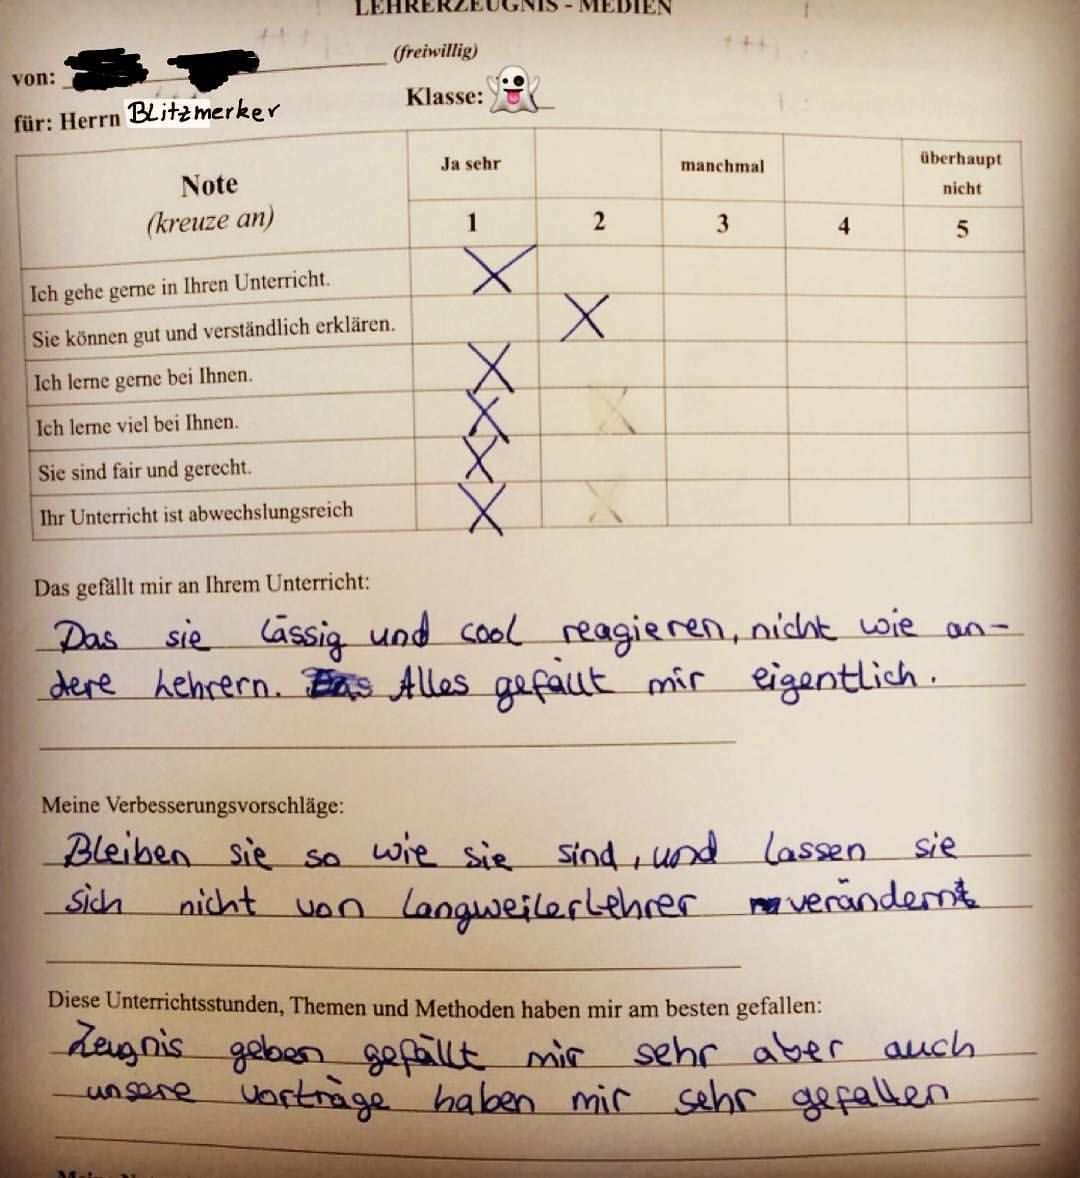 LEHRERZEUGNIS - MEDIEN
(freiwillig)
von:
Klasse:
für: Herrn Blitzmerker
Note
(kreuze an)
Ja sehr
manchmal
überhaupt
nicht
1 2 3 4 5
Ich gehe gerne in Ihren Unterricht.
Sie können gut und verständlich erklären.
Ich lerne gerne bei Ihnen.
Ich lerne viel bei Ihnen.
Sie sind fair und gerecht.
Ihr Unterricht ist abwechslungsreich
Das gefällt mir an Ihrem Unterricht:
Das sie lässig und cool reagieren, nicht wie an-
dere Lehrern. Alles gefällt mir eigentlich.
Meine Verbesserungsvorschläge:
Bleiben sie so wie sie sind, und lassen sie
sich nicht von Langweilerlehrer verändern
Diese Unterrichtsstunden, Themen und Methoden haben mir am besten gefallen:
Zeugnis geben gefällt mir sehr aber auch
unsere Vorträge haben mir sehr gefallen